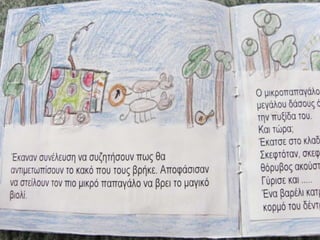 Έκαναν συνέλευση να συζητήσουν πως θα
αντιμετωπίσουν το κακό που τους βρήκε. Αποφάσισαν
να στείλουν τον πιο μικρό παπαγάλο να βρει το μαγικό
βιολί.
Ο μικροπαπαγάλο
μεγάλου δάσους
την πυξίδα του.
Και τώρα;
Έκατσε στο κλαδ
Σκεφτόταν, σκεφ
θόρυβος ακούστ
Γύρισε και .....
Ένα βαρέλι κατρ
κορμό του δέντ